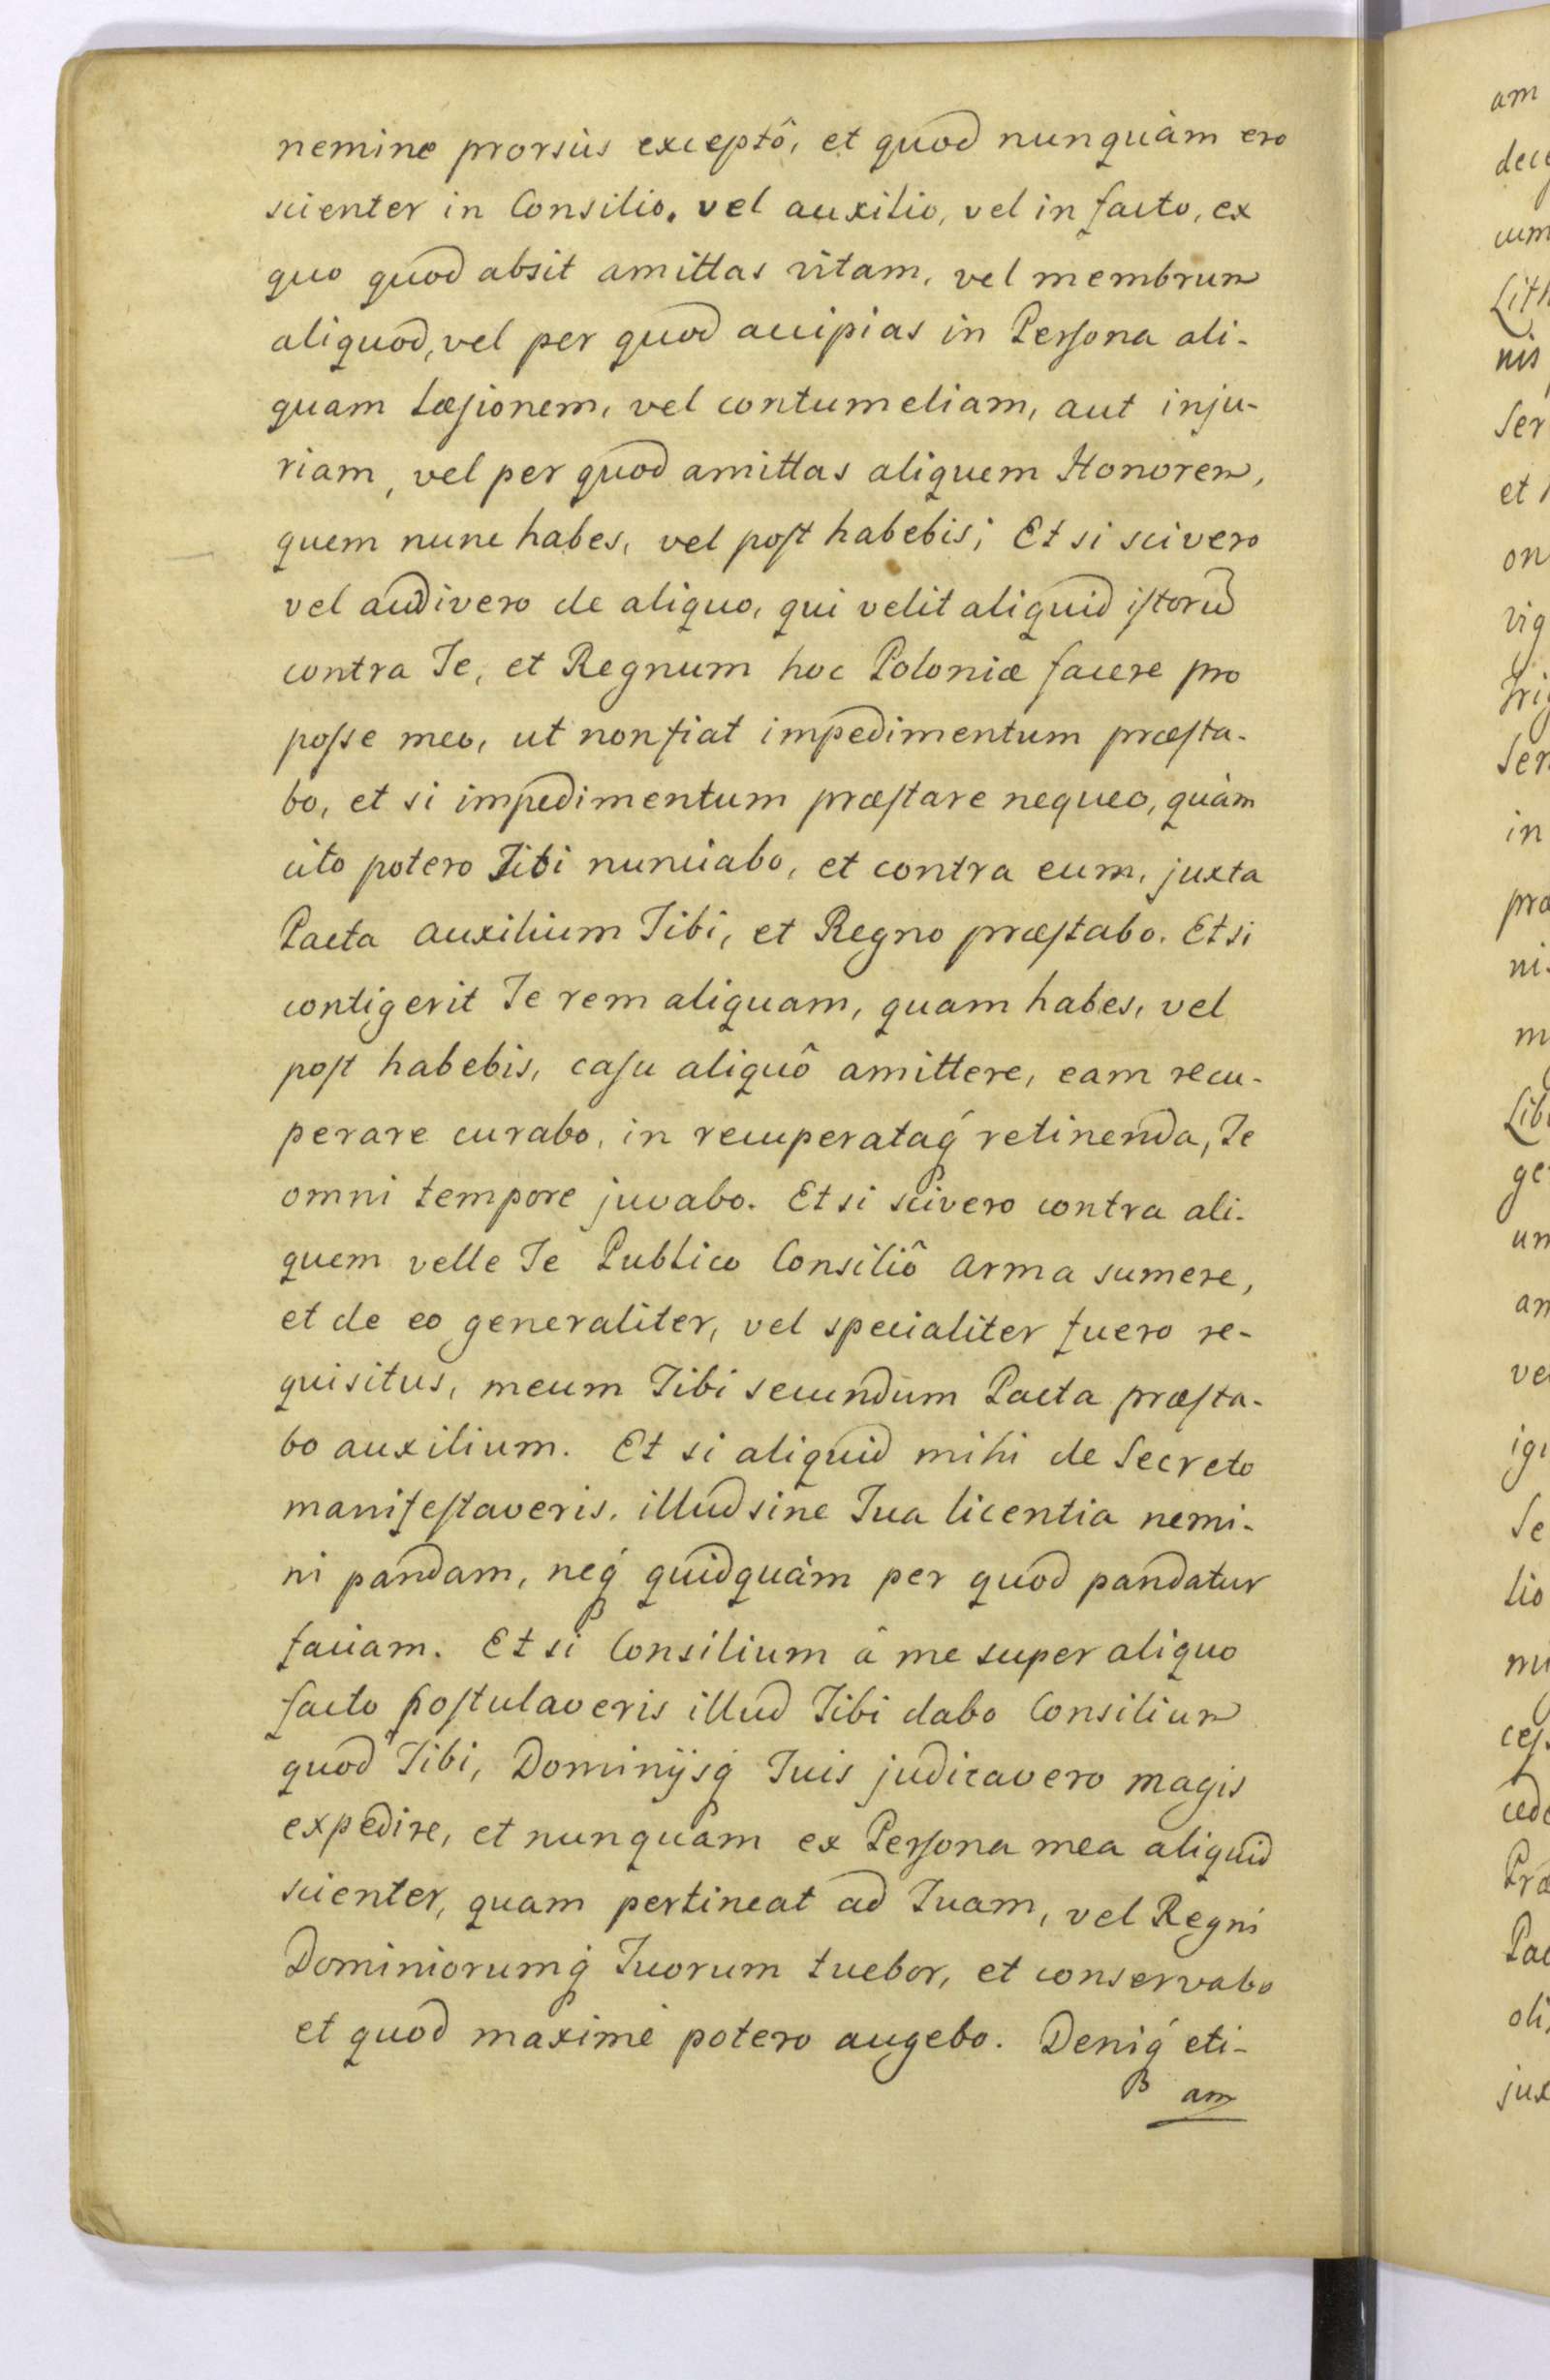 nemine prorsùs exceptô, et quod nunquàm ero
scienter in Consilio, vel auxilio, vel in facto, ex
quo quod absit amittas vitam, vel membrum
aliquod, vel per quod accipias in Persona ali-
quam Læsionem, vel contumeliam, aut inju-
riam, vel per quod amittas aliquem Honorem,
quem nunc habes, vel post habebis; Et si scivero
vel audivero de aliquo, qui velit aliquid istorũ
contra Te, et Regnum hoc Poloniæ facere pro
posse meo, ut non fiat impedimentum præsta-
bo, et si impedimentum præstare nequeo, quàm
cito potero Tibi nunciabo, et contra eum, juxta
Pacta auxilium Tibi, et Regno præstabo. Et si
contigerit Te rem aliquam, quam habes, vel
post habebis, casu aliquô amittere, eam recu-
perare curabo, in recuperataq́ retinenda, Te
omni tempore juvabo. Et si scivero contra ali-
quem velle Te Publico Consiliô arma sumere,
et de eo generaliter, vel specialiter fuero re-
quisitus, meum Tibi secundum Pacta præsta-
bo auxilium. Et si aliquid mihi de Secreto
manifestaveris, illud sine Tua licentia nemi-
ni pandam, neq́ quidquàm per quod pandatur
faciam. Et si Consilium â me super aliquo
facto postulaveris illud Tibi dabo Consilium
quod Tibi, Dominijsq́ Tuis judicavero magis
expedire, et nunquàm ex Persona mea aliquid
scienter, quam pertineat ad Tuam, vel Regni
Dominiorumq́ Tuorum tuebor, et conservabo
et quod maximè potero augebo. Deniq́ eti-
am
am
cum
Lith
nis
Ser
et
on
vig
Ser
in
præ
ni-
m
Lib
ge
um
an
ve
igi
Se
lio
ces
cede
Præ
Pac
oli
jux